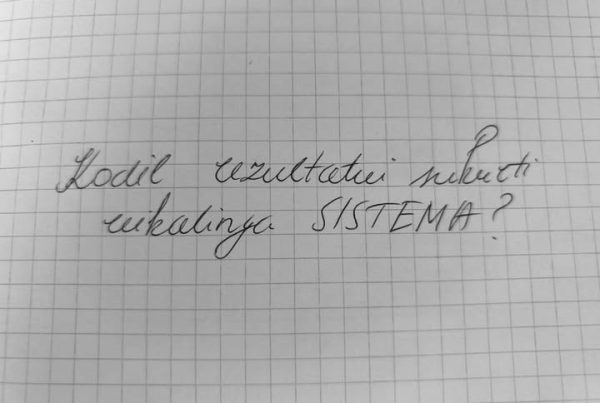 Kodėl rezultatui sukurti
reikalinga SISTEMA?